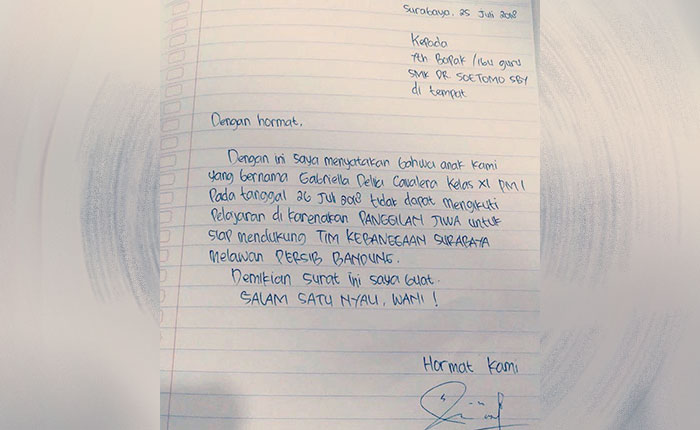 Surabaya, 25 Juli 2018
Kepada
Yth Bapak / Ibu guru
SMK DR SOETOMO SBY
di tempat
Dengan hormat,
Dengan ini saya menyatakan bahwa anak kami
yang bernama Gabriella Delia Cavalera Kelas XI PM 1
Pada tanggal 26 Juli 2018 tidak dapat mengikuti
Pelajaran di karenakan PANGGILAN JIWA untuk
siap mendukung TIM KEBANGGAAN SURABAYA
melawan PERSIB BANDUNG.
Demikian surat ini saya buat.
SALAM SATU NYALI, WANI !
Hormat Kami